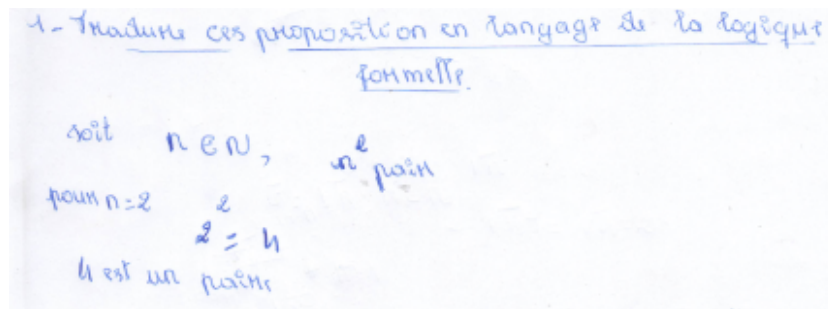 1- Traduire ces proposition en langage de la logique
formelle.
soit n ∈ N, n² pair
pour n=2 2² = 4
4 est un paire